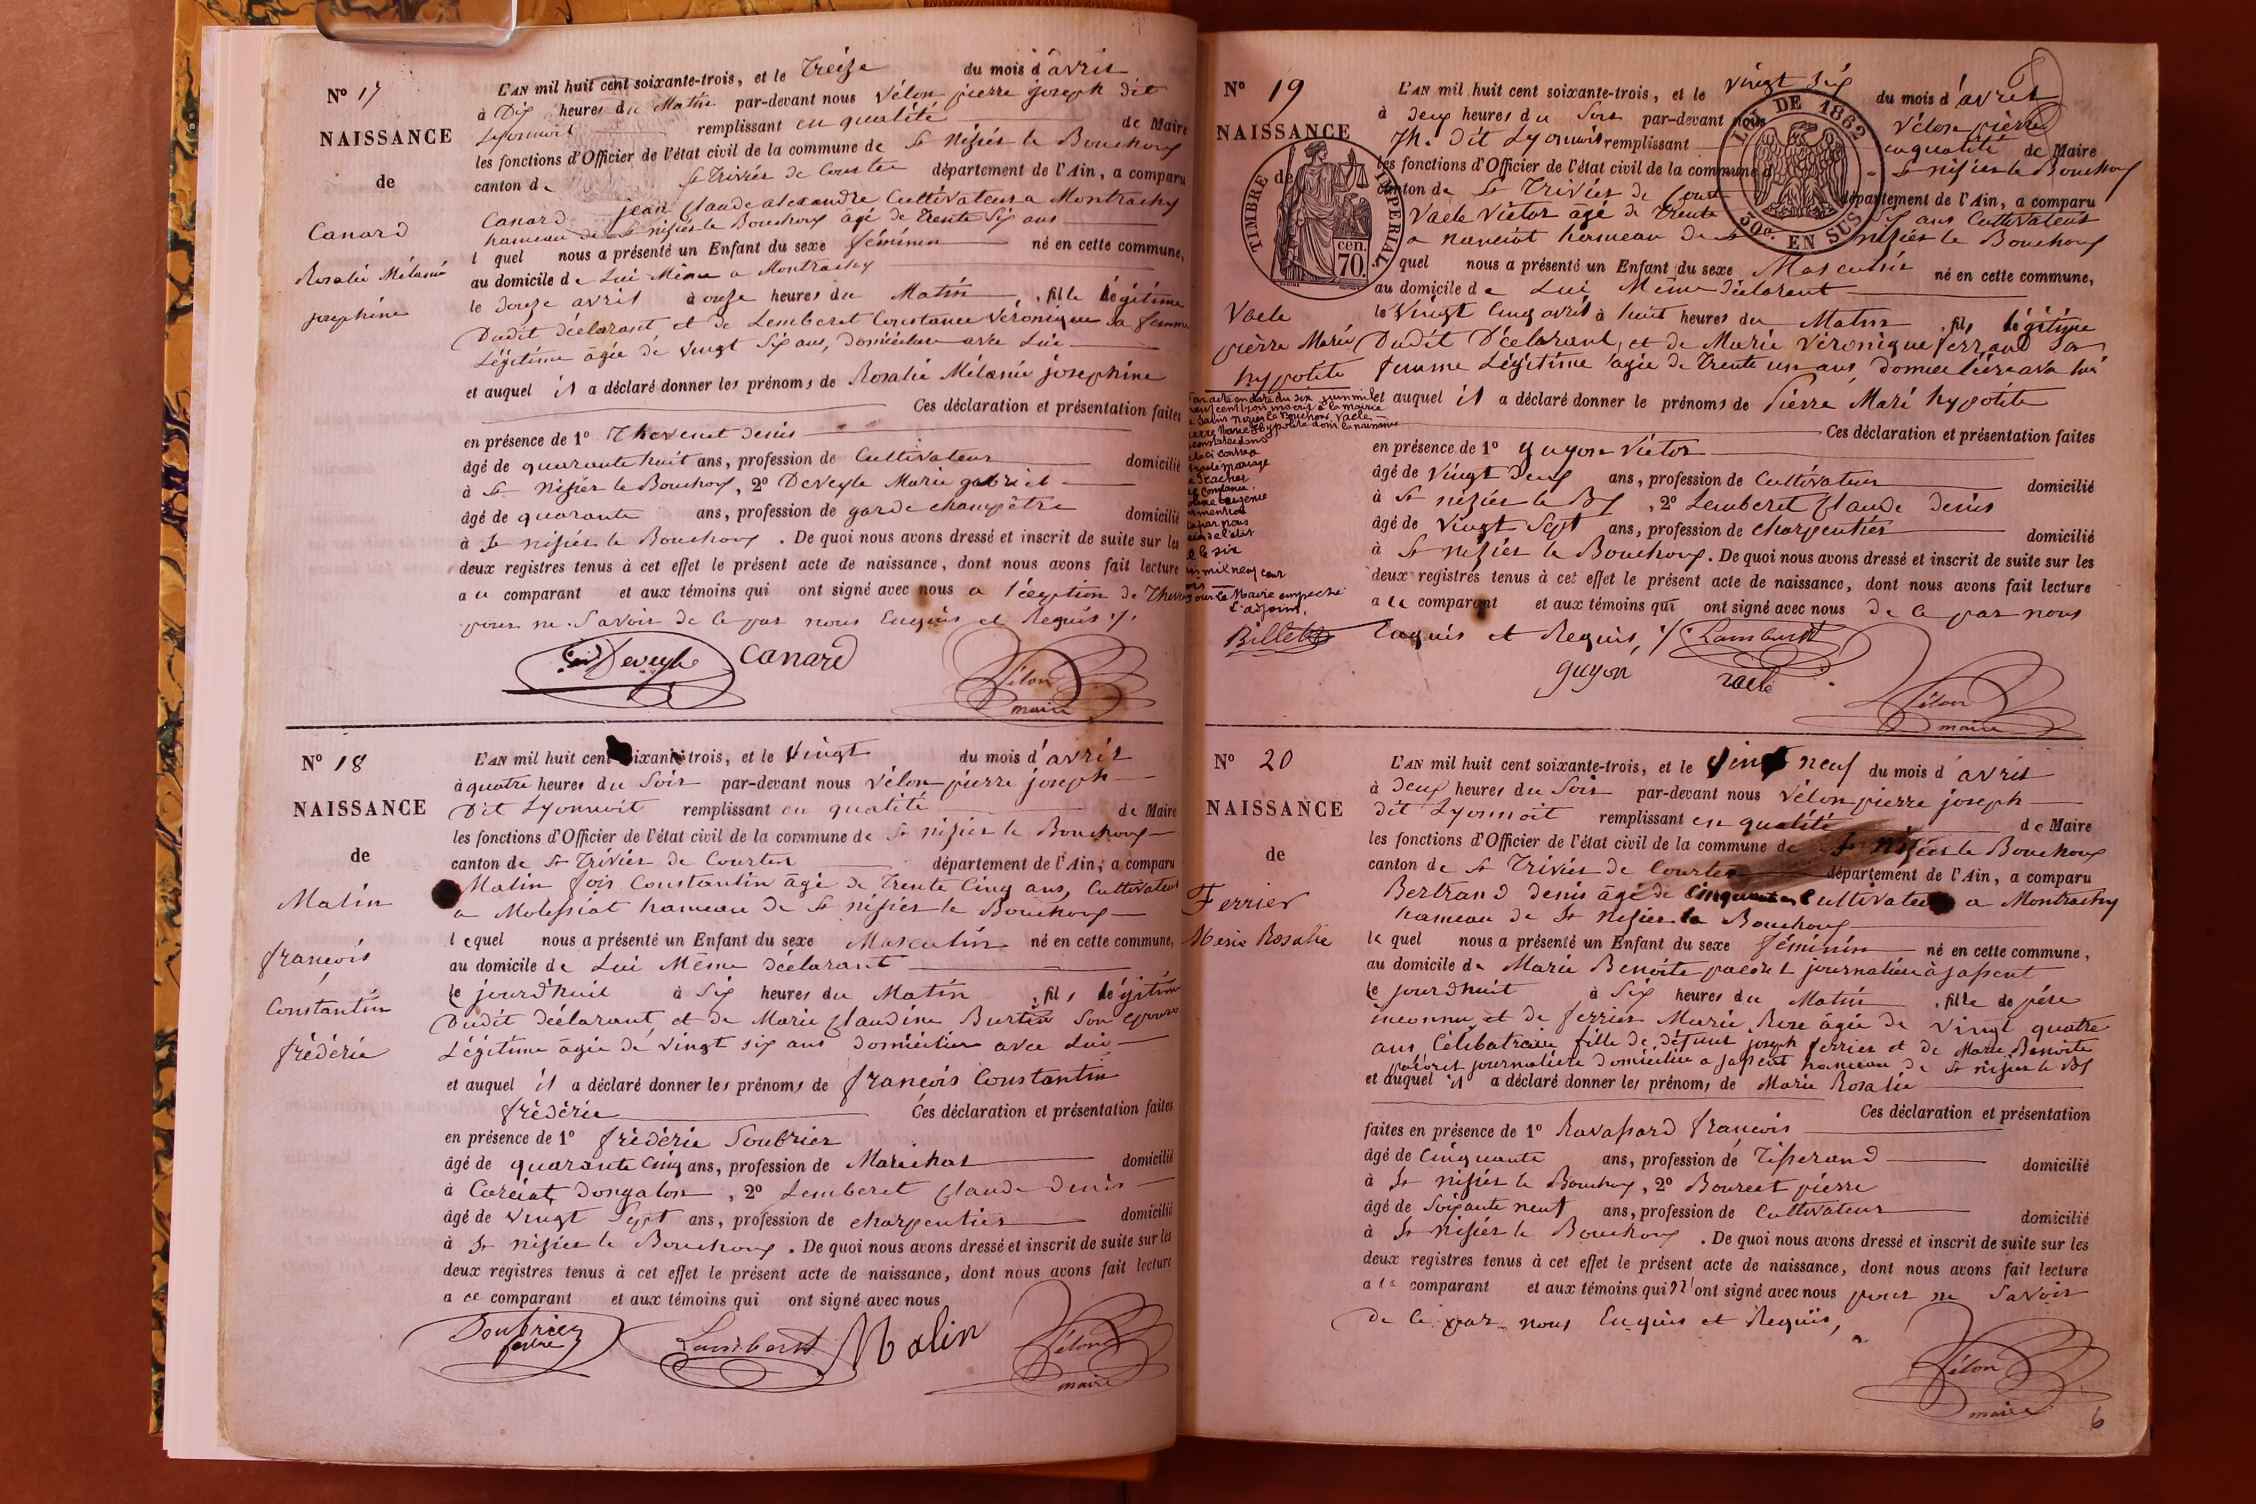 N° 17
NAISSANCE
de
Canard
Rosalie Mélanie
josephine
L'AN mil huit cent soixante-trois, et le Treize du mois d'avril
à Dix heures du Matin par-devant nous Vélon pierre joseph dit
Lyonnoit remplissant en qualité de Maire
les fonctions d'Officier de l'état civil de la commune de St Nizier le Bouchoux
canton de St Trivier de Courtes département de l'Ain, a comparu
Canard jean Claude alexandre Cultivateur a Montrachy
hameau de St nizier le Bouchoux âgé de trente Six ans
lequel nous a présenté un Enfant du sexe féminin né en cette commune,
au domicile de Lui Même a Montrachy
le Douze avril à onze heures du Matin, fille légitime
Dudit déclarant et de Lemberet Constance Véronique Sa femme
Légitime âgée de Vingt Six ans, domiciliée avec Lui
et auquel il a déclaré donner les prénoms de Rosalie Mélanie josephine
Ces déclaration et présentation faites
en présence de 1° Thevenet Denis
âgé de quarante huit ans, profession de Cultivateur domicilié
à St Nizier le Bouchoux, 2° Deveyle Marie gabriel
âgé de quarante ans, profession de garde champêtre domicilié
à St nizier le Bouchoux. De quoi nous avons dressé et inscrit de suite sur les
deux registres tenus à cet effet le présent acte de naissance, dont nous avons fait lecture
au comparant et aux témoins qui ont signé avec nous a l'éxeption de
pour ne Savoir de ce par nous Enquis et Requis
Deveyle Canard Vélon
maire
N° 18
NAISSANCE
de
Malin
françois
Constantin
frédéric
L'AN mil huit cent soixante-trois, et le Vingt du mois d'avril
à quatre heures du Soir par-devant nous Vélon pierre joseph
Dit Lyonnoit remplissant en qualité de Maire
les fonctions d'Officier de l'état civil de la commune de St nizier le Bouchoux
canton de St Trivier de Courtes département de l'Ain, a comparu
Malin fois Constantin âgé de Trente Cinq ans, Cultivateur
a Molissiat hameau de St nizier le Bouchoux
lequel nous a présenté un Enfant du sexe Masculin né en cette commune,
au domicile de Lui Même déclarant
le jourd'huit à Six heures du Matin, fils légitime
Dudit déclarant et de Marie Claudine Burtin Son epouse
Légitime âgée de Vingt six ans domiciliée avec Lui
et auquel il a déclaré donner les prénoms de françois Constantin
frédéric Ces déclaration et présentation faites
en présence de 1° frédéric Soubrier
âgé de quarante Cinq ans, profession de Marechal domicilié
à Curciat Dongalon, 2° Lemberet Claude Denis
âgé de Vingt Sept ans, profession de charpentier domicilié
à St nizier le Bouchoux. De quoi nous avons dressé et inscrit de suite sur les
deux registres tenus à cet effet le présent acte de naissance, dont nous avons fait lecture
a ce comparant et aux témoins qui ont signé avec nous
Soubrier Lamberet Malin Vélon
maire
N° 19
NAISSANCE
de
TIMBRE IMPERIAL
70 cen.
LOI DE 1862
50c. EN SUS
Vaele
pierre Marie
hypolite
Billet
L'AN mil huit cent soixante-trois, et le Vingt Six du mois d'avril
à deux heures du Soir par-devant nous Vélon pierre
Jh. Dit Lyonnois remplissant en qualité de Maire
les fonctions d'Officier de l'état civil de la commune de St nizier le Bouchoux
canton de St Trivier de Courtes département de l'Ain, a comparu
Vaele Victor âgé de Trente Six ans Cultivateur
a hameau de St nizier le Bouchoux
quel nous a présenté un Enfant du sexe Masculin né en cette commune,
au domicile de Lui Même déclarant
le Vingt Cinq avril à huit heures du Matin, fils légitime
Dudit Déclarant, et de Marie Véronique ferrand Sa
femme Légitime âgée de Trente un ans domiciliée avec lui
et auquel il a déclaré donner le prénoms de Pierre Marie hypolite
Ces déclaration et présentation faites
en présence de 1° guyon Victor
âgé de Vingt Deux ans, profession de Cultivateur domicilié
à St nizier le Bx, 2° Lemberet Claude Denis
âgé de Vingt Sept ans, profession de charpentier domicilié
à St nizier le Bouchoux. De quoi nous avons dressé et inscrit de suite sur les
deux registres tenus à cet effet le présent acte de naissance, dont nous avons fait lecture
a le comparant et aux témoins qui ont signé avec nous de ce par nous
Enquis et Requis, Lamberet
guyon Vaele Vélon
maire
N° 20
NAISSANCE
de
Ferrier
Marie Rosalie
L'AN mil huit cent soixante-trois, et le Vingt neuf du mois d'avril
à Deux heures du Soir par-devant nous Vélon pierre joseph
dit Lyonnoit remplissant en qualité de Maire
les fonctions d'Officier de l'état civil de la commune de St Nizier le Bouchoux
canton de St Trivier de Courtes département de l'Ain, a comparu
Bertrand denis âgé de Cinquante Cultivateur a Montrachy
hameau de St Nizier le Bouchoux
le quel nous a présenté un Enfant du sexe féminin né en cette commune,
au domicile de Marie Benoite journalière à jassent
le jourdhuit à Six heures du Matin, fille de père
inconnu et de ferrier Marie Rose âgée de Vingt quatre
ans Célibataire fille de défunt joseph ferrier et de Marie Benoite
journalière domiciliée a jassent hameau de St nizier le Bx
et auquel il a déclaré donner les prénoms de Marie Rosalie
Ces déclaration et présentation
faites en présence de 1° Ravassard françois
âgé de Cinquante ans, profession de Tisserand domicilié
à St nizier le Bouchoux, 2° Bourcet pierre
âgé de Soixante neuf ans, profession de Cultivateur domicilié
à St Nizier le Bouchoux. De quoi nous avons dressé et inscrit de suite sur les
deux registres tenus à cet effet le présent acte de naissance, dont nous avons fait lecture
a le comparant et aux témoins qui n'ont signé avec nous pour ne Savoir
de ce par nous Enquis et Requis,
Vélon
maire
6